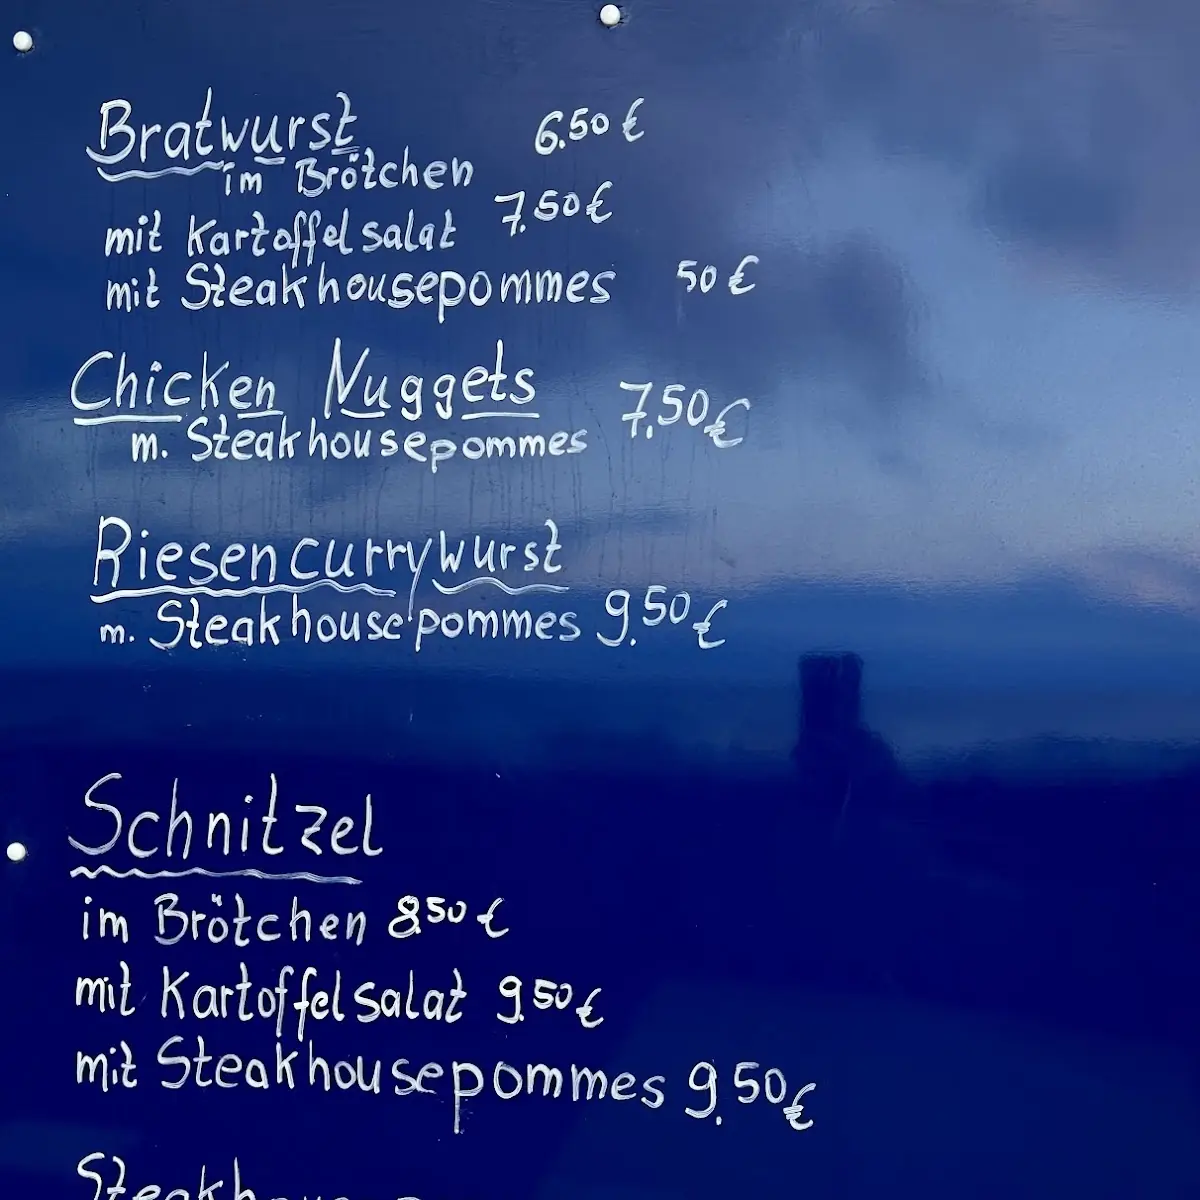 Bratwurst 6.50 €
im Brötchen
mit Kartoffelsalat 7.50 €
mit Steakhousepommes 50 €
Chicken Nuggets 7.50 €
m. Steakhousepommes
Riesencurrywurst
m. Steakhousepommes 9.50 €
Schnitzel
im Brötchen 8.50 €
mit Kartoffelsalat 9.50 €
mit Steakhousepommes 9.50 €